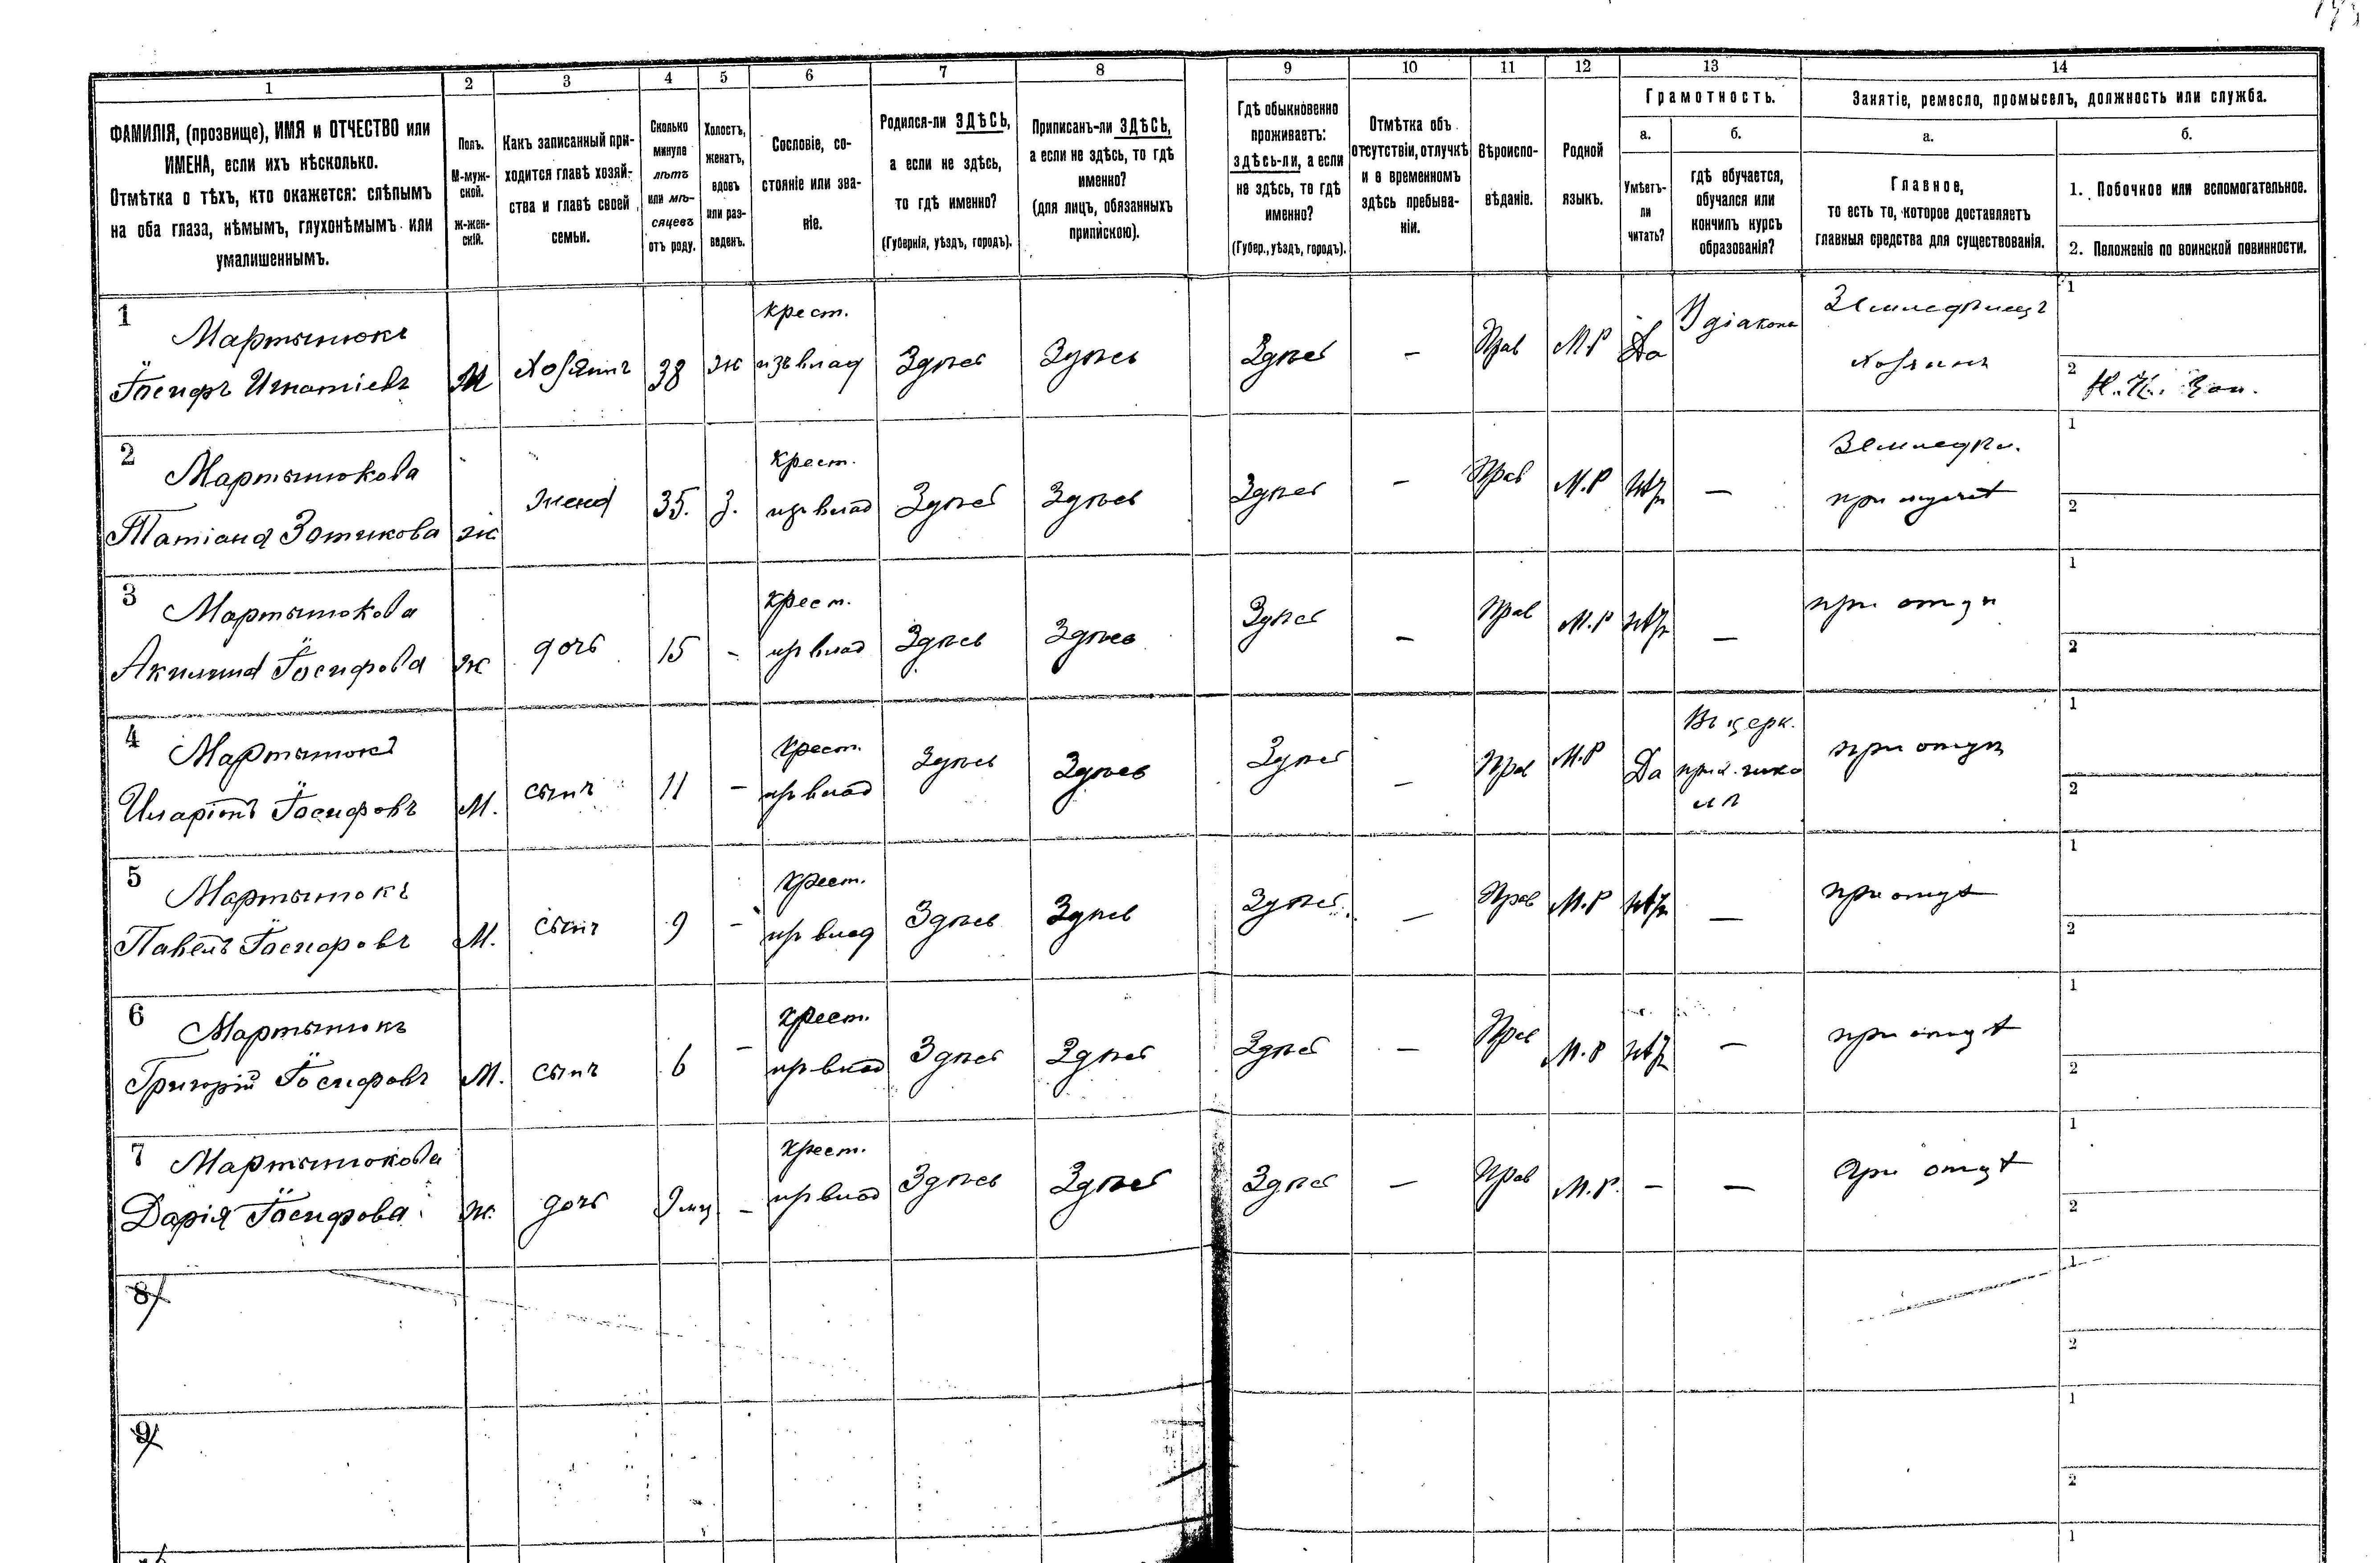 1 2 3 4 5 6 7 8 9 10 11 12 13 14
ФАМИЛІЯ, (прозвище), ИМЯ и ОТЧЕСТВО или
ИМЕНА, если ихъ нѣсколько.
Отмѣтка о тѣхъ, кто окажется: слѣпымъ
на оба глаза, нѣмымъ, глухонѣмымъ или
умалишеннымъ.
Полъ.
М-муж-
ской.
ж-жен-
скій.
Какъ записанный при-
ходится главѣ хозяй-
ства и главѣ своей
семьи.
Сколько
минуло
лѣтъ
или мѣ-
сяцевъ
отъ роду.
Холостъ,
женатъ,
вдовъ
или раз-
веденъ.
Сословіе, со-
стояніе или зва-
ніе.
Родился-ли ЗДѢСЬ,
а если не здѣсь,
то гдѣ именно?
(Губернія, уѣздъ, городъ).
Приписанъ-ли ЗДѢСЬ,
а если не здѣсь, то гдѣ
именно?
(для лицъ, обязанныхъ
припискою).
Гдѣ обыкновенно
проживаетъ:
здѣсь-ли, а если
не здѣсь, то гдѣ
именно?
(Губер., уѣздъ, городъ).
Отмѣтка объ
отсутствіи, отлучкѣ
и о временномъ
здѣсь пребыва-
ніи.
Вѣроиспо-
вѣданіе.
Родной
языкъ.
Грамотность.
а.
Умѣетъ-
ли
читать?
б.
гдѣ обучается,
обучался или
кончилъ курсъ
образованія?
Занятіе, ремесло, промыселъ, должность или служба.
а.
Главное,
то есть то, которое доставляетъ
главныя средства для существованія.
б.
1. Побочное или вспомогательное.
2. Положеніе по воинской повинности.
1 Мартынюкъ
Іосифъ Игнатіевъ М Хозяинъ 38 ж
крест.
изъ влад Здѣсь Здѣсь Здѣсь — Прав М.Р Да
У діакона
Земледѣлецъ
Хозяинъ
1
2
2 Мартынюкова
Татіана Зотикова ж жена 35. з.
крест.
изъ влад Здѣсь Здѣсь Здѣсь — Прав М.Р нѣт —
Земледѣл.
при мужѣ
1
2
3 Мартынюкова
Акилина Іосифова ж дочь 15 -
крест.
изъ влад Здѣсь Здѣсь Здѣсь — Прав М.Р нѣт —
при отцѣ
1
2
4 Мартынюкъ
Иларіонъ Іосифовъ М. сынъ 11 -
крест.
изъ влад Здѣсь Здѣсь Здѣсь — Прав М.Р Да
Въ церк.
прих. шко
лѣ
при отцѣ
1
2
5 Мартынюкъ
Павелъ Іосифовъ М. сынъ 9 -
крест.
изъ влад Здѣсь Здѣсь Здѣсь — Прав М.Р нѣт —
при отцѣ
1
2
6 Мартынюкъ
Григорій Іосифовъ М. сынъ 6 -
крест.
изъ влад Здѣсь Здѣсь Здѣсь — Прав М.Р нѣт —
при отцѣ
1
2
7 Мартынюкова
Дарія Іосифова ж. дочь 9 мц -
крест.
изъ влад Здѣсь Здѣсь Здѣсь — Прав М.Р. — —
При отцѣ
1
2
8
1
2
9
1
2
1